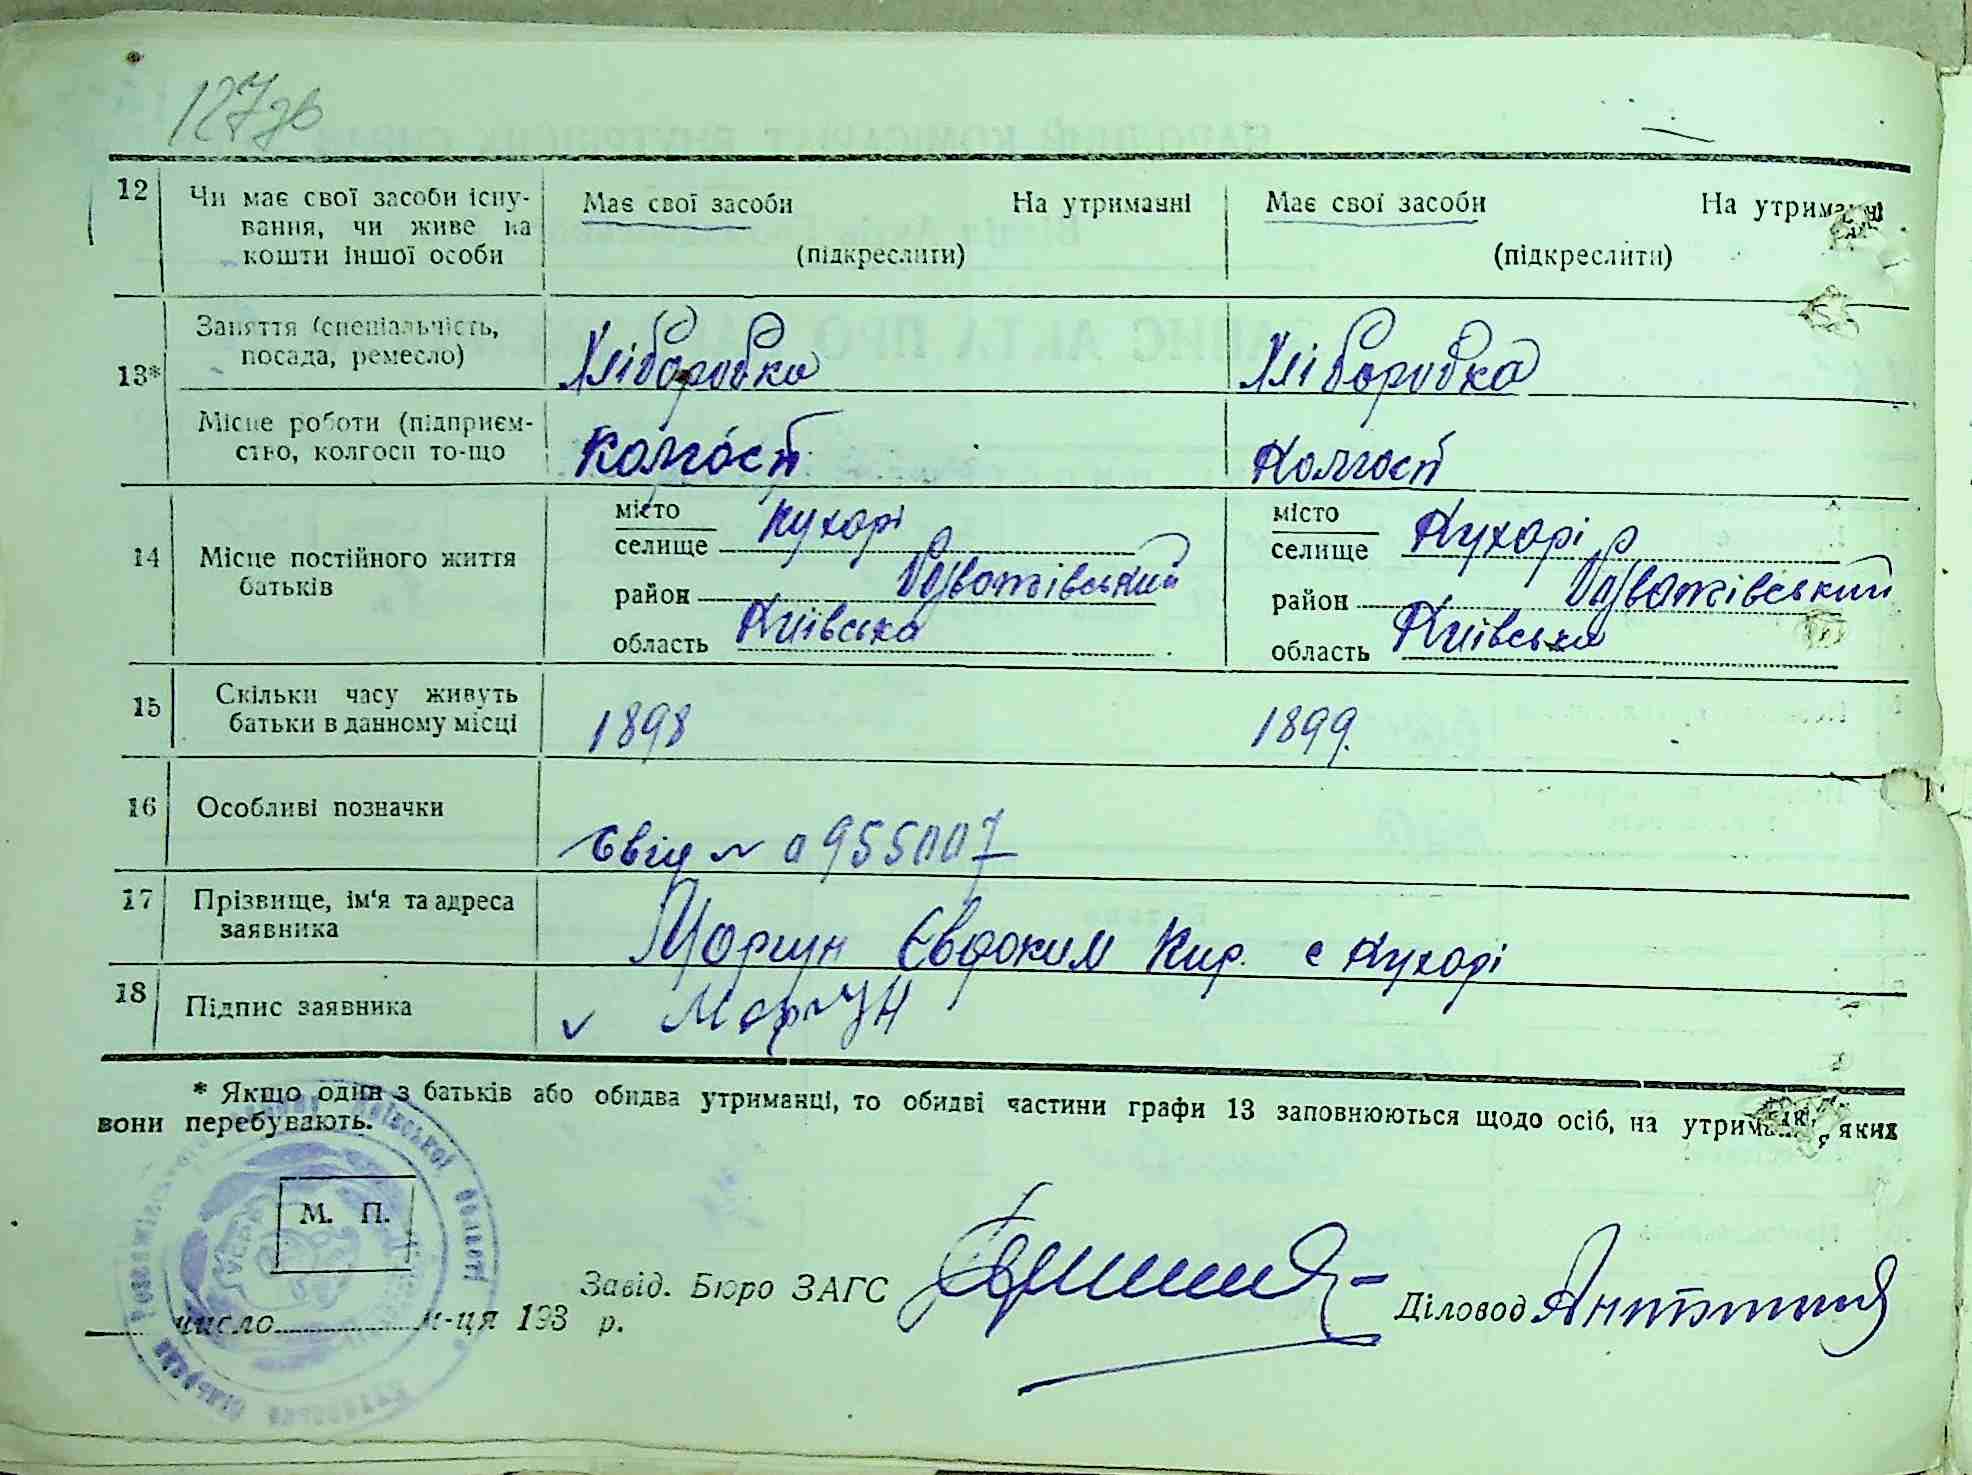 127зв
12 Чи має свої засоби існу-
вання, чи живе на
кошти іншої особи
Має свої засоби На утриманні
(підкреслити)
Має свої засоби На утриманні
(підкреслити)
13* Заняття (спеціальність,
посада, ремесло)
Хлібородка Хлібородка
Місце роботи (підприєм-
ство, колгосп то-що
Колгосп Колгосп
14 Місце постійного життя
батьків
місто
селище Кухарі
район Розважівський
область Київська
місто
селище Кухарі
район Розважівський
область Київська
15 Скільки часу живуть
батьки в данному місці
1898 1899.
16 Особливі позначки
Свід № 0955007
17 Прізвище, ім'я та адреса
заявника
Моргун Євдоким Кир. с Кухарі
18 Підпис заявника
v Моргун
* Якщо один з батьків або обидва утриманці, то обидві частини графи 13 заповнюються щодо осіб, на утриманні яких
вони перебувають.
М. П.
Завід. Бюро ЗАГС
Діловод
число м-ця 193 р.